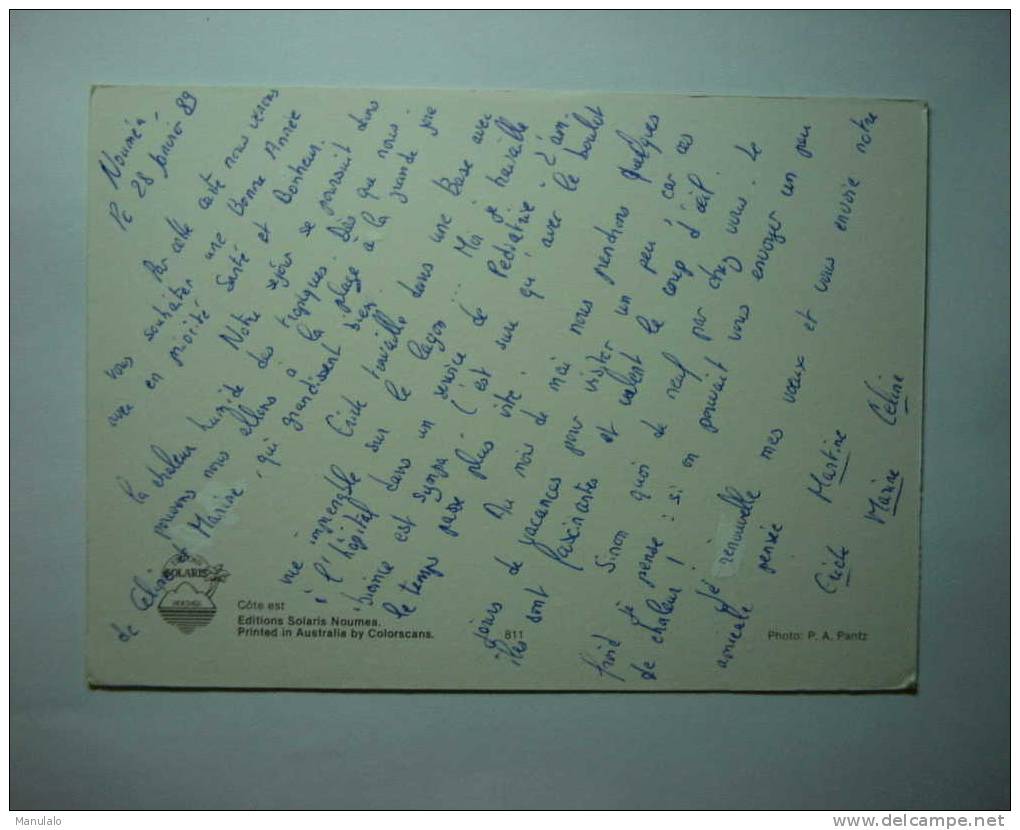 Nouméa,
le 28 janvier 89
Par cette carte nous venons
vous souhaiter une Bonne Année
avec en priorité Santé et Bonheur.
Notre séjour se poursuit dans
la chaleur humide des tropiques. Dès que nous
pouvons nous allons à la plage à la grande joie
de Céline et Marine, qui grandissent bien.
travaille dans une Base avec
vie imprenable sur le lagon... Moi je travaille
à l'hôpital dans un service de Pédiatrie : l'am-
biance est sympa. C'est sûre qu'avec le boulot
le temps passe plus vite !
Au mois de mai nous prendrons quelques
jours de vacances pour visiter un peu car ces
îles sont fascinantes et valent le coup d'œil.
Sinon quoi de neuf par chez vous. Le
froid je pense ! si on pouvait vous envoyer un peu
de chaleur !
Je renouvelle mes vœux et vous envoie notre
amicale pensée
Martine Céline
Marine
SOLARIS
Côte est
Editions Solaris Noumea.
Printed in Australia by Colorscans.
811
Photo: P. A. Pantz
Manulalo
www.delcampe.net